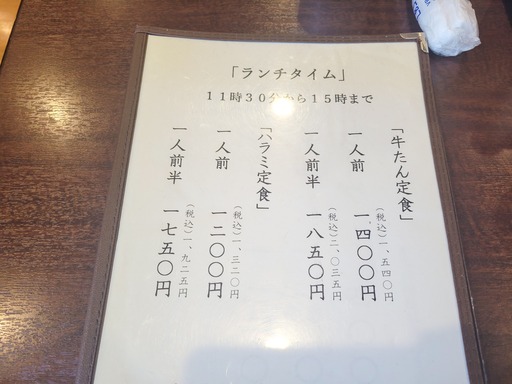 「ランチタイム」
１１時３０分から１５時まで
「牛たん定食」
一人前　一、四〇〇円
（税込）一、五四〇円
一人前半　一八五〇円
（税込）二、〇三五円
「ハラミ定食」
一人前　一二〇〇円
（税込）一、三二〇円
一人前半　一七五〇円
（税込）一、九二五円